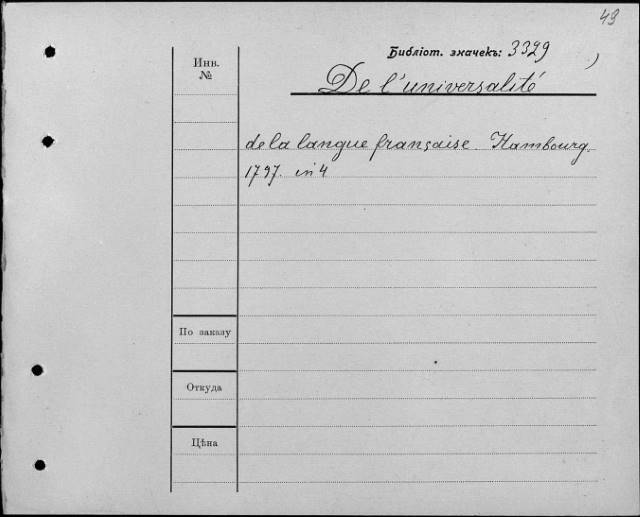 49
Библіот. значекъ: 3329
Инв.
№
De l'universalité
de la langue française. Hambourg.
1797. in 4
По заказу
Откуда
Цѣна